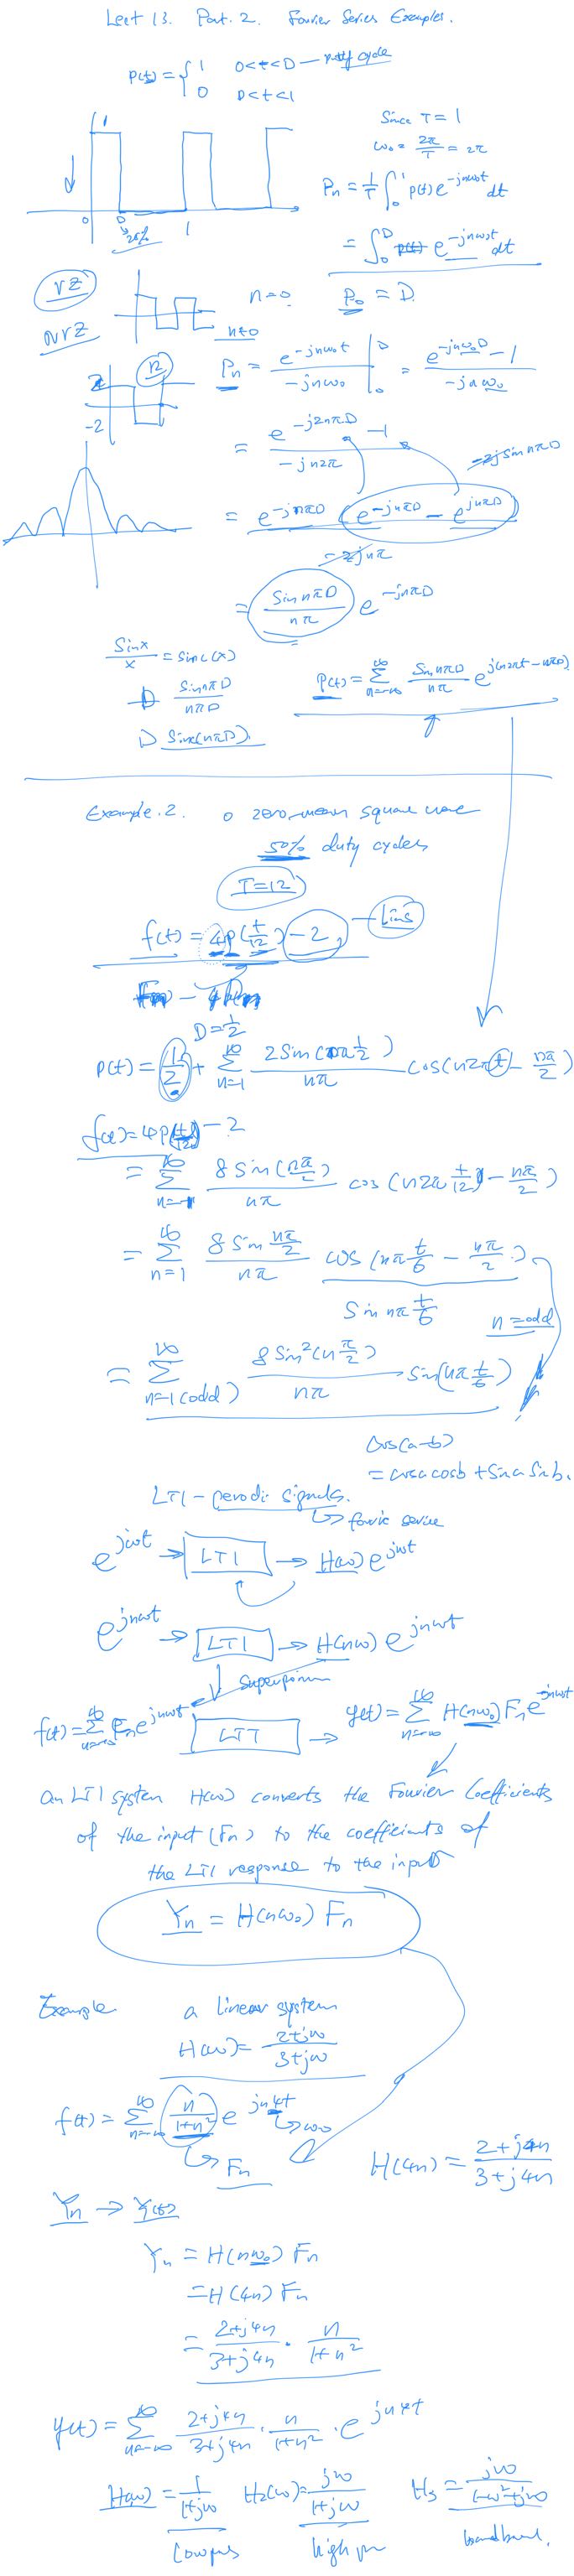 Lect 13. Part. 2. Fourier Series Examples.
p(t) = { 1 0<t<D — duty cycle
0 D<t<1
1
0 D 1
25%
Since T = 1
ω₀ = 2π/T = 2π
Pn = 1/T ∫₀¹ p(t) e^{-jnω₀t} dt
= ∫₀^D e^{-jnω₀t} dt
rz
nrz
n=0 P₀ = D.
n≠0
12
2
-2
Pn = e^{-jnω₀t} / -jnω₀ |₀^D = (e^{-jnω₀D} - 1) / -jnω₀
= (e^{-j2nπD} - 1) / -jn2π
-2j sin nπD
= e^{-jnπD} (e^{-jnπD} - e^{jnπD}) / -2jnπ
= (sin nπD / nπ) e^{-jnπD}
sin x / x = sinc(x)
D sin nπD / nπD
D sinc(nπD).
p(t) = Σ_{n=-∞}^{∞} (sin nπD / nπ) e^{j(n2πt - nπD)}
Example. 2. o zero-mean square wave
50% duty cycles
T=12
f(t) = 4p(t/12) - 2,
D = 1/2
p(t) = 1/2 + Σ_{n=1}^{∞} (2 sin(nπ 1/2) / nπ) cos(n2πt - nπ/2)
f(t) = 4p(t/12) - 2
= Σ_{n=1}^{∞} (8 sin(nπ/2) / nπ) cos(n2π t/12 - nπ/2)
= Σ_{n=1}^{∞} (8 sin nπ/2 / nπ) cos(nπ t/6 - nπ/2)
sin nπ t/6
n = odd
= Σ_{n=1(odd)}^{∞} (8 sin²(n π/2) / nπ) sin(nπ t/6)
cos(a-b)
= cosa cosb + sina sinb.
LTI - periodic signals.
↳ fourier series
e^{jωt} → LTI → H(ω) e^{jωt}
e^{jnωt} → LTI → H(nω) e^{jnωt}
↓ superposition
f(t) = Σ_{n=-∞}^{∞} Fn e^{jnωt} LTI → y(t) = Σ_{n=-∞}^{∞} H(nω₀) Fn e^{jnωt}
an LTI system H(ω) converts the Fourier Coefficients
of the input (Fn) to the coefficients of
the LTI response to the input
Yn = H(nω₀) Fn
Example a linear system
H(ω) = (2+jω) / (3+jω)
f(t) = Σ_{n=-∞}^{∞} (n / 1+n²) e^{jn4t}
↳ ω₀
↳ Fn
H(4n) = (2+j4n) / (3+j4n)
Yn → y(t)
Yn = H(nω₀) Fn
= H(4n) Fn
= (2+j4n) / (3+j4n) · n / (1+n²)
y(t) = Σ_{n=-∞}^{∞} (2+j4n) / (3+j4n) · n / (1+n²) · e^{jn4t}
H(ω) = 1 / (1+jω) H₂(ω) = jω / (1+jω) H₃ = jω / (1-ω²+jω)
lowpass